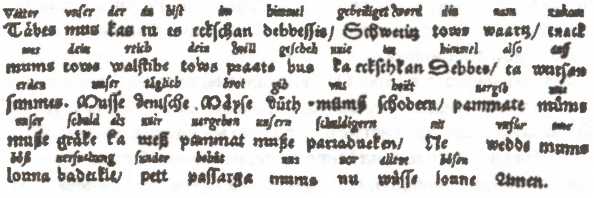 Vatter vnser der du bist im himmel geheiliget werd din nam zukam
Täbes mus kas tu es eckschan debbessis/ Schwetitz tows waartz/ enack
vns dein reich dein will gescheh wie im himmel also auff
mums tows walstibe tows praats bus ka eckschkan Debbes/ ta wursan
erden vnser täglich brot gib vns heüt vergib vns
semmes. Musse denische Mayse düth mums schodeen/ pammate mums
vnser schuld als wir vergeben vnsern schuldigern nit
muße gräke ka meß pammat muße parradueken/ Ne wedde mums
böß versuchung sunder behüt vns vor allem bösen
louna badeckle/ pett passarga mums nu wüsse loune Amen.